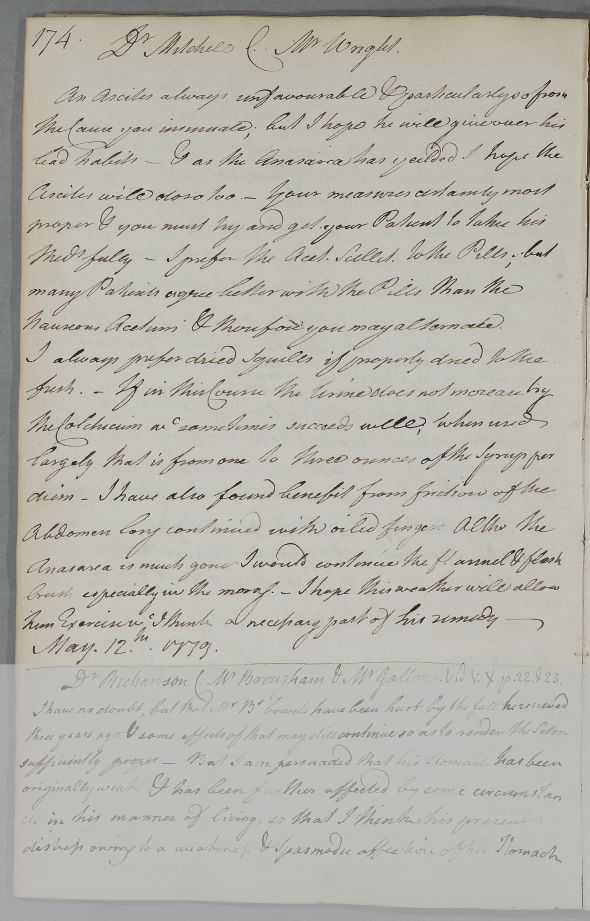 174.
Dr Mitchell C. Mr Wright.
An Ascites always unfavourable & particularly so from
the Cause you insinuate; but I hope he will give over his
bad habits – & as the Anasarca has yeilded I hope the
Ascites will do so too. – Your measures certainly most
proper & you must try and get your Patient to take his
Meds fully – I prefer the Acet. Scillit. to the Pills; but
many Patients agree better with the Pills than the
nauseous Acetum & therefore you may alternate.
I always prefer dried Squills if properly dried to the
fresh. – If in this Course the Urine does not increase try
the Colchicum wc sometimes succeeds well, when used
largely that is from one to three ounces of the Syrup per
diem – I have also found benefit from friction of the
Abdomen long continued with oiled fingers Altho the
Anasarca is much gone I would continue the flannel & flesh
brush especially in the morng. – I hope this weather will allow
him Exercise wc I think a necessary part of his remedy –
May. 12.th 1779.
Dr Richardson C Mr Brougham & Mr Gallon. Vid V. X. p. 22. & 23.
I have no doubt, but that Mr Bs bowels have been hurt by the fall he received
three years ago & some effects of that may still continue so as to render the Seton
sufficiently proper – But I am persuaded that his Stomach has been
originally weak & has been further affected by some circumstan
ces in his manner of living, so that I think his present
distress owing to a weakness & Spasmodic affection of his Stomach